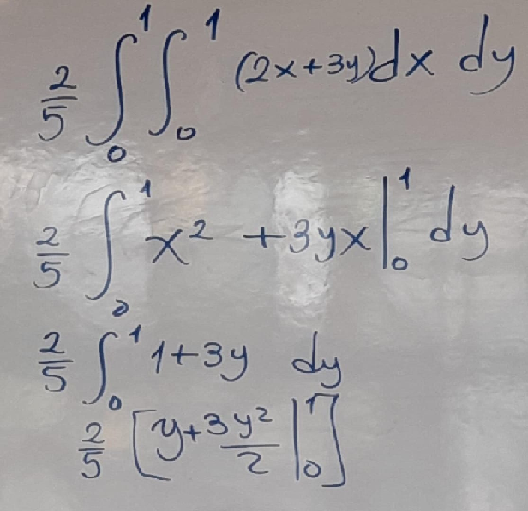 2/5 ∫₀¹ ∫₀¹ (2x+3y)dx dy
2/5 ∫₀¹ x² +3yx|₀¹ dy
2/5 ∫₀¹ 1+3y dy
2/5 [y+3y²/2 |₀¹]